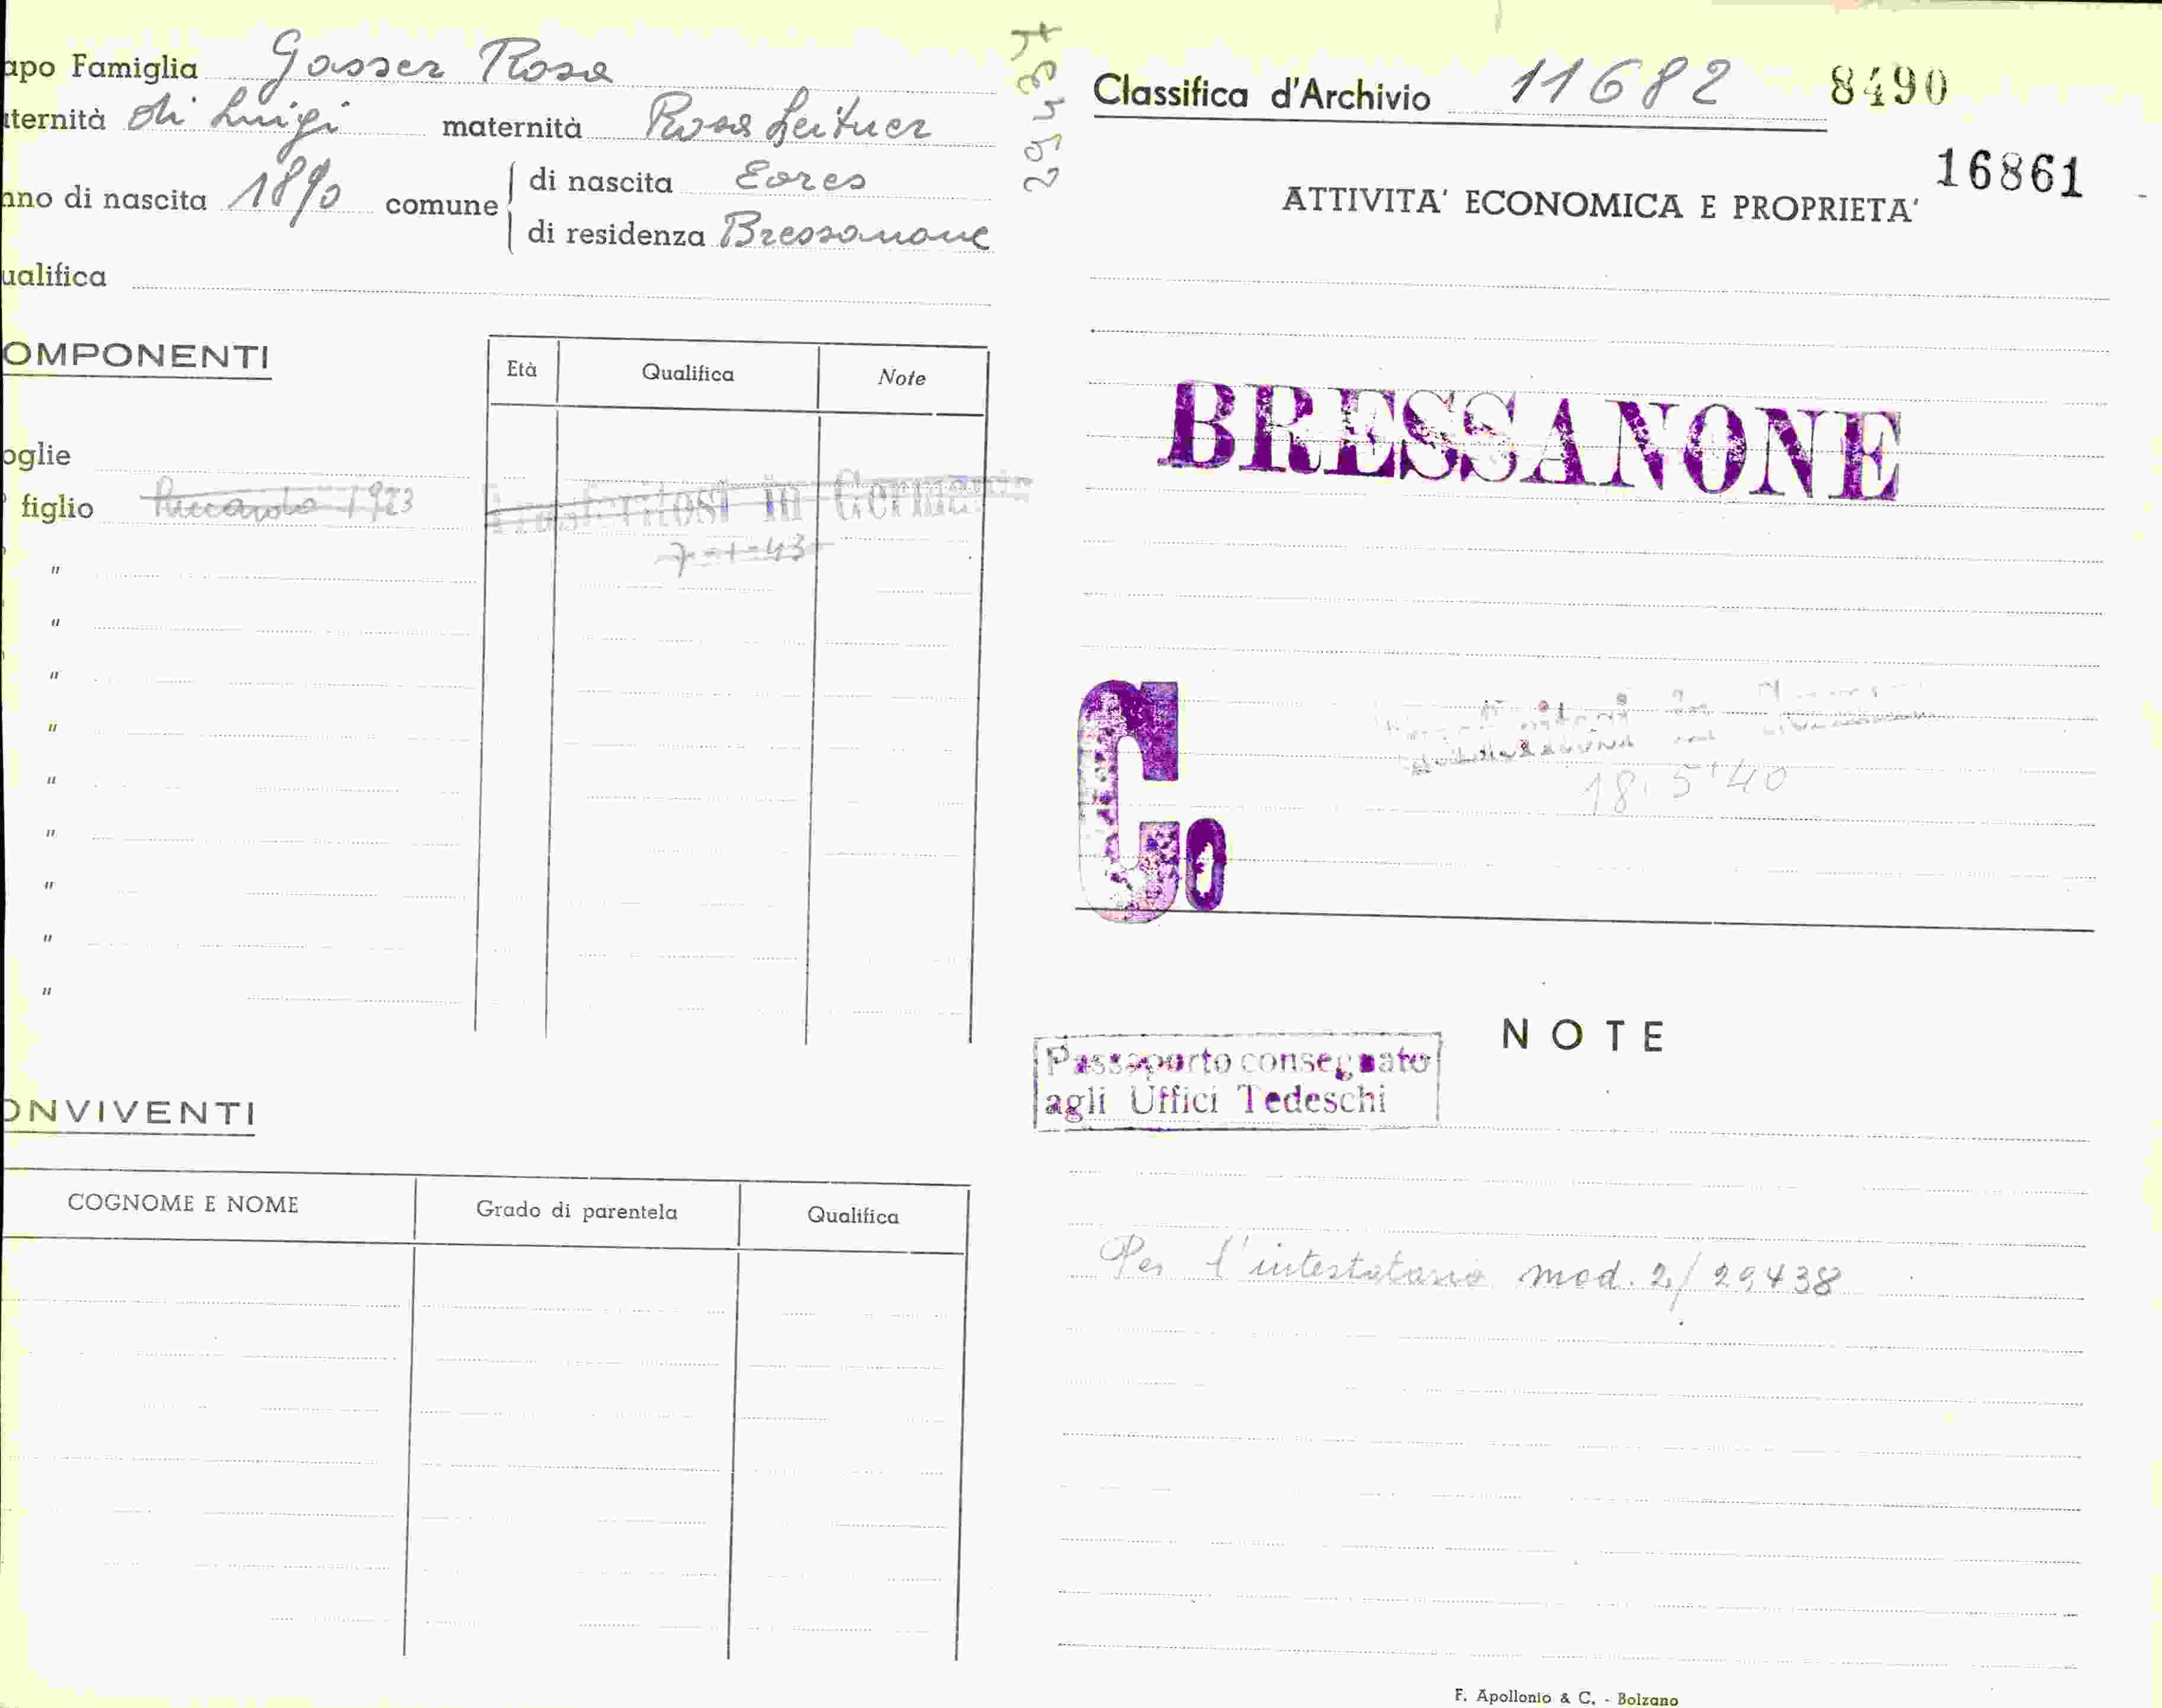 apo Famiglia Gasser Rosa
ternità di Luigi maternità Rosa Leitner
nno di nascita 1890 comune di nascita Eores
di residenza Bressanone
ualifica
OMPONENTI
Età Qualifica Note
oglie
figlio Riccardo 1923 Trasferitosi in Germania
7-1-43
"
"
"
"
"
"
"
"
"
ONVIVENTI
COGNOME E NOME Grado di parentela Qualifica
Classifica d'Archivio 11682 8490
16861
ATTIVITA' ECONOMICA E PROPRIETA'
BRESSANONE
18.5.40
Co
NOTE
Passaporto consegnato
agli Uffici Tedeschi
Per l'intestatario mod. 2/29438
F. Apollonio & C. - Bolzano